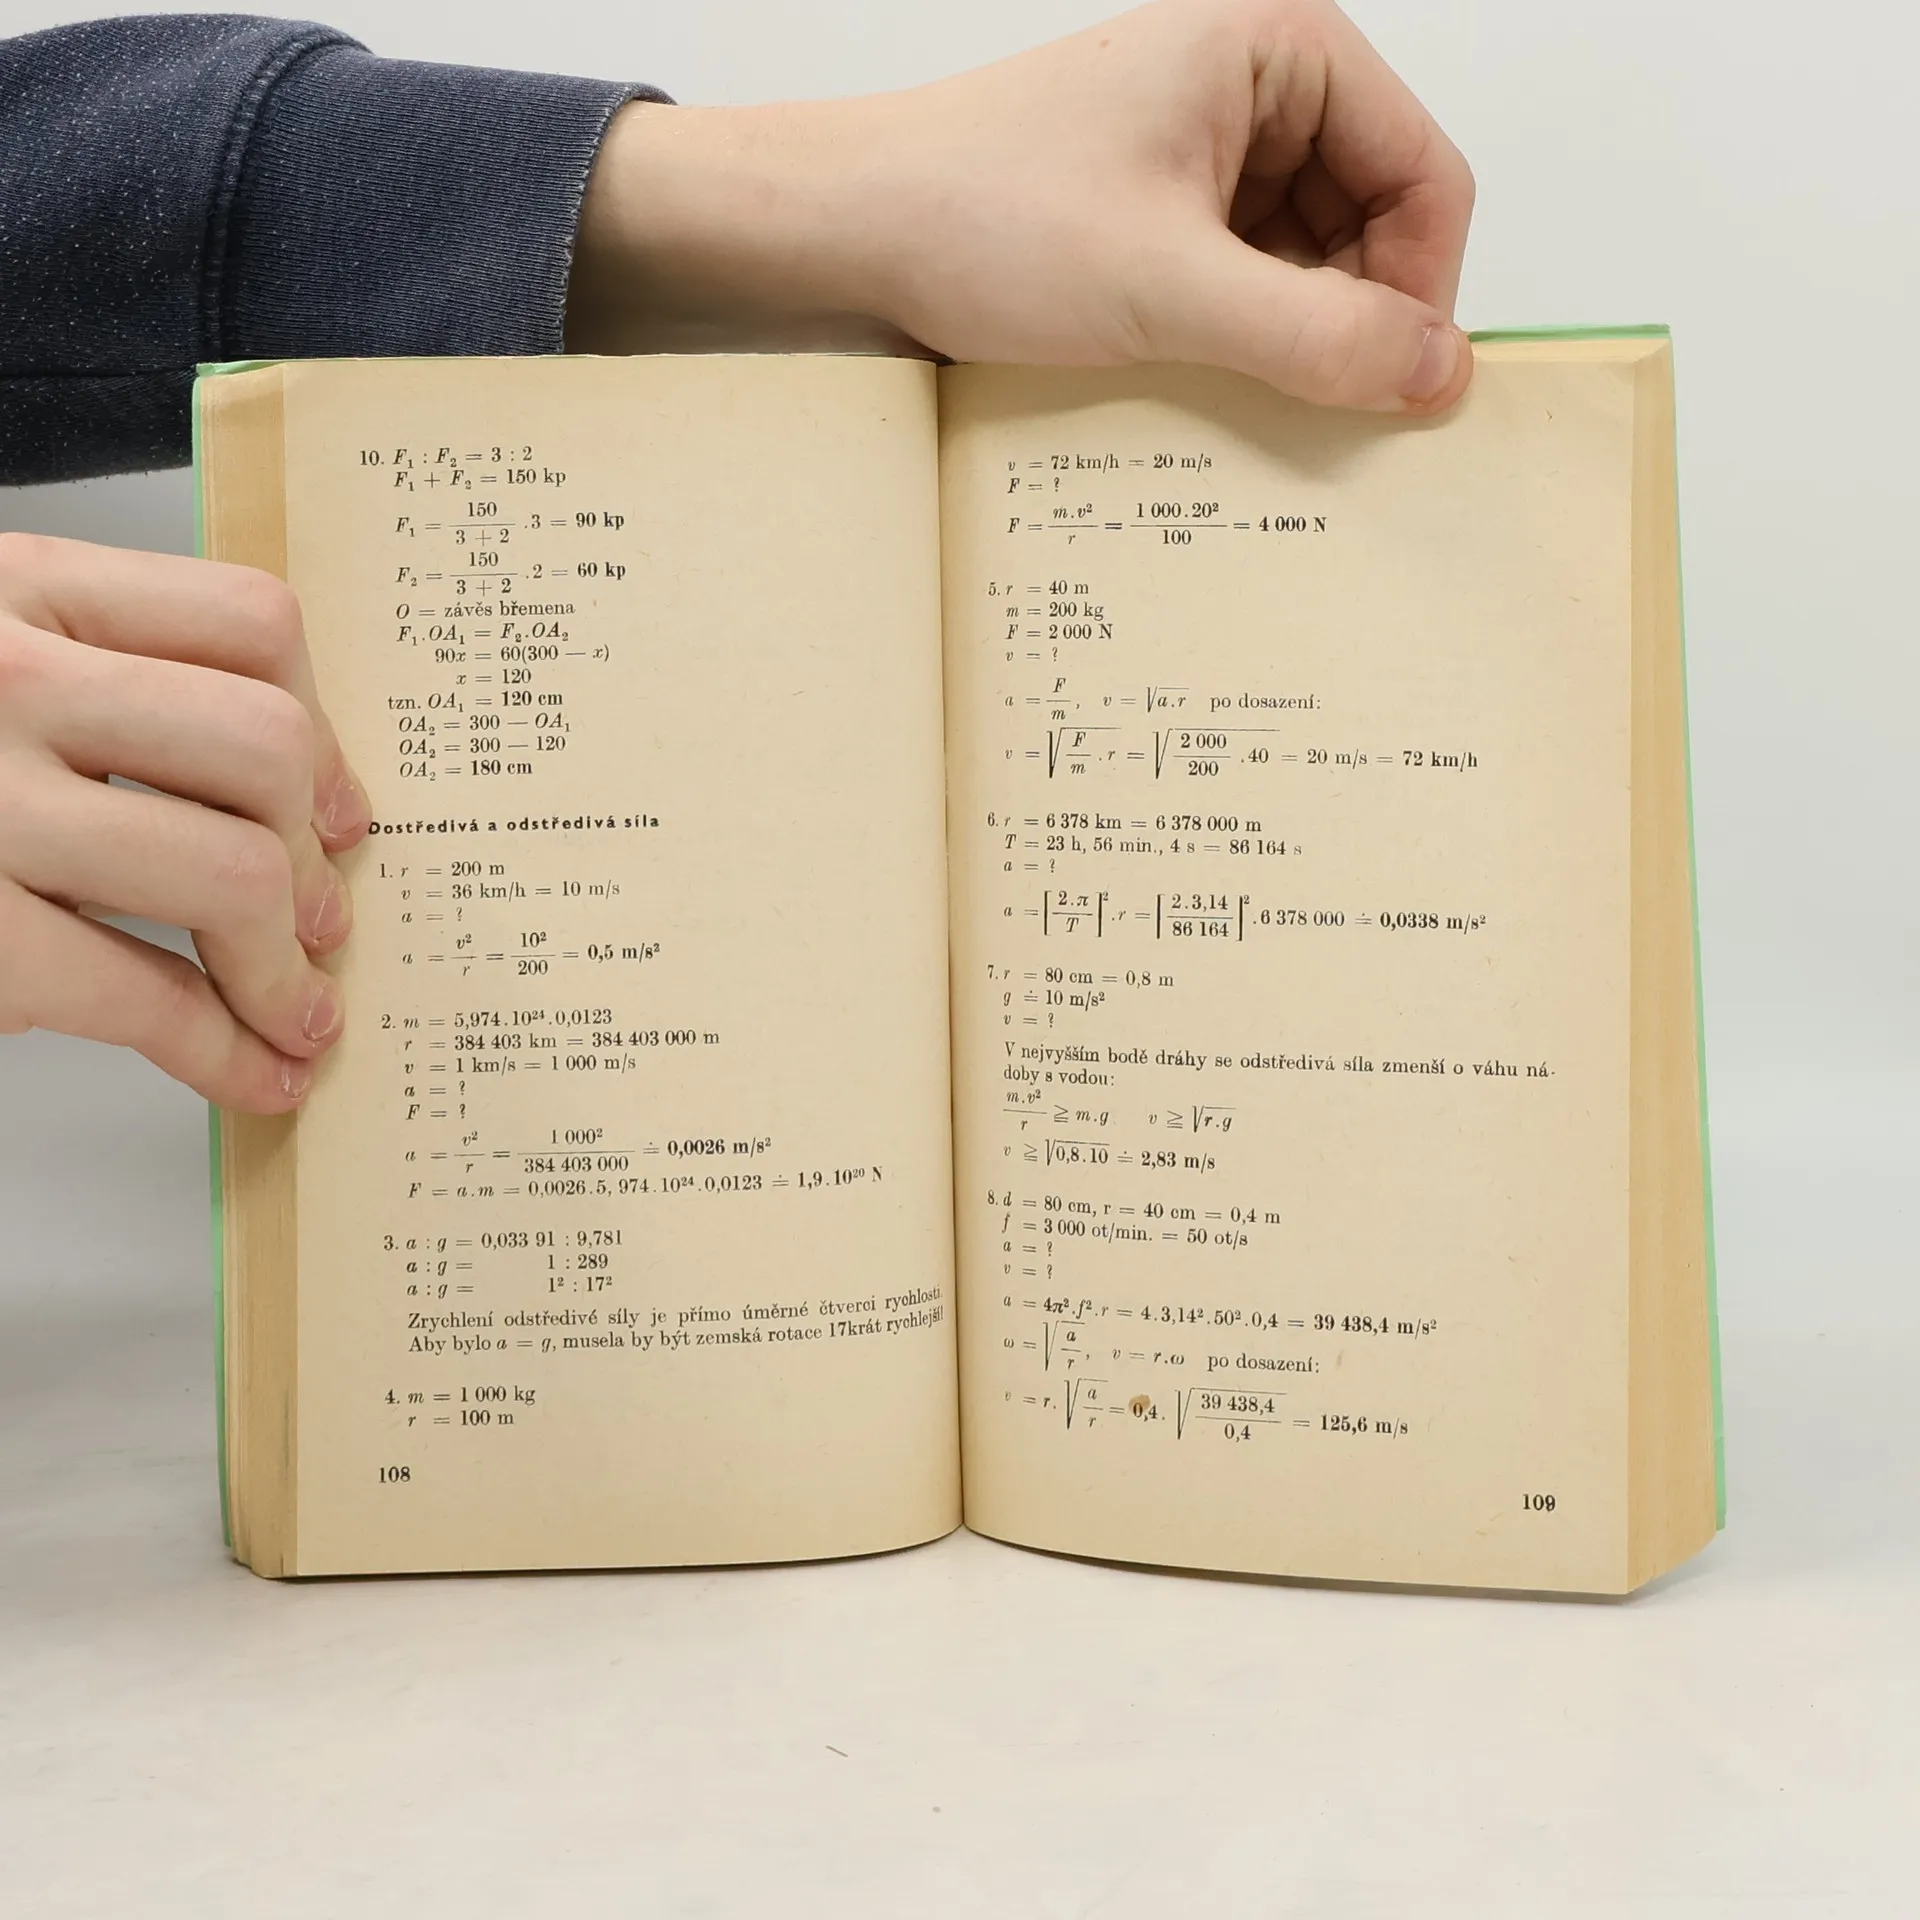 10. F₁ : F₂ = 3 : 2
F₁ + F₂ = 150 kp
F₁ = 150 / (3 + 2) . 3 = 90 kp
F₂ = 150 / (3 + 2) . 2 = 60 kp
O = závěs břemena
F₁.OA₁ = F₂.OA₂
90x = 60(300 — x)
x = 120
tzn. OA₁ = 120 cm
OA₂ = 300 — OA₁
OA₂ = 300 — 120
OA₂ = 180 cm
Dostředivá a odstředivá síla
1. r = 200 m
v = 36 km/h = 10 m/s
a = ?
a = v² / r = 10² / 200 = 0,5 m/s²
2. m = 5,974.10²⁴.0,0123
r = 384 403 km = 384 403 000 m
v = 1 km/s = 1 000 m/s
a = ?
F = ?
a = v² / r = 1 000² / 384 403 000 ≐ 0,0026 m/s²
F = a.m = 0,0026.5, 974.10²⁴.0,0123 ≐ 1,9.10²⁰ N
3. a : g = 0,033 91 : 9,781
a : g = 1 : 289
a : g = 1² : 17²
Zrychlení odstředivé síly je přímo úměrné čtverci rychlosti.
Aby bylo a = g, musela by být zemská rotace 17krát rychlejší!
4. m = 1 000 kg
r = 100 m
108
v = 72 km/h = 20 m/s
F = ?
F = m.v² / r = 1 000.20² / 100 = 4 000 N
5. r = 40 m
m = 200 kg
F = 2 000 N
v = ?
a = F / m, v = √a.r po dosazení:
v = √(F / m . r) = √(2 000 / 200 .40) = 20 m/s = 72 km/h
6. r = 6 378 km = 6 378 000 m
T = 23 h, 56 min., 4 s = 86 164 s
a = ?
a = [2.π / T]².r = [2.3,14 / 86 164]².6 378 000 ≐ 0,0338 m/s²
7. r = 80 cm = 0,8 m
g ≐ 10 m/s²
v = ?
V nejvyšším bodě dráhy se odstředivá síla zmenší o váhu ná-
doby s vodou:
m.v² / r ≧ m.g v ≧ √r.g
v ≧ √0,8.10 ≐ 2,83 m/s
8. d = 80 cm, r = 40 cm = 0,4 m
f = 3 000 ot/min. = 50 ot/s
a = ?
v = ?
a = 4π².f².r = 4.3,14².50².0,4 = 39 438,4 m/s²
ω = √(a / r), v = r.ω po dosazení:
v = r.√(a / r) = 0,4.√(39 438,4 / 0,4) = 125,6 m/s
109